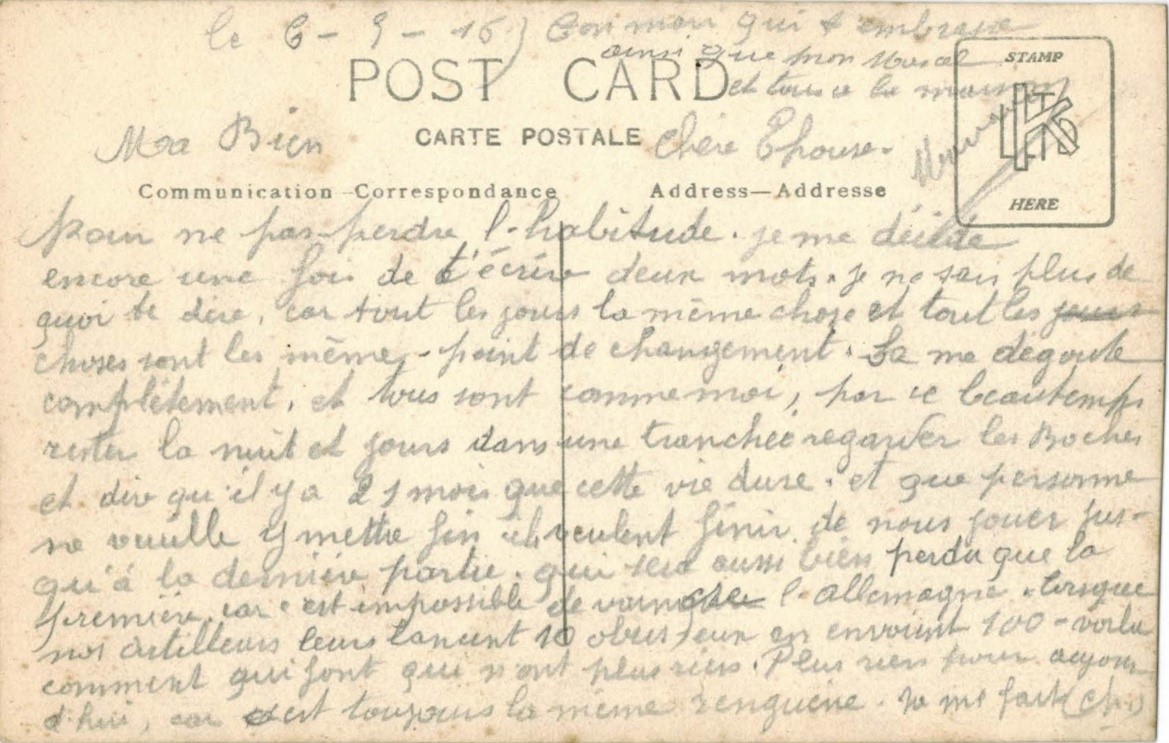 le 6-5-16) Ton mari qui t'embrasse
ainsi que mon
et tous à la maison
POST CARD
STAMP
HERE
CARTE POSTALE
Ma Bien Chère Epouse.
Communication-Correspondance
Address—Addresse
pour ne pas perdre l'habitude. je me décide
encore une fois de t'écrire deux mots. je ne sais plus de
quoi te dire, car tout les jours la même chose et tout les jours
choses sont les même, point de changement. Sa me dégoute
complètement, et tous sont comme moi, par ce beau temps
rester la nuit et jours dans une tranchée regarder les Boches
et dire qu'il y a 21 mois que cette vie dure. et que personne
ne veuille y mettre fin ils veulent finir de nous jouer jus-
qu'à la dernière partie. qui sera aussi bien perdu que la
première, car c'est impossible de vaincre l'allemagne. lorsque
nos artilleurs leurs lancent 10 obus, eux en envoient 100 - voila
comment qui font qui n'ont plus rien. Plus rien pour aujour
d'hui, car c'est toujours la même renguène. Je me fait (ch..)